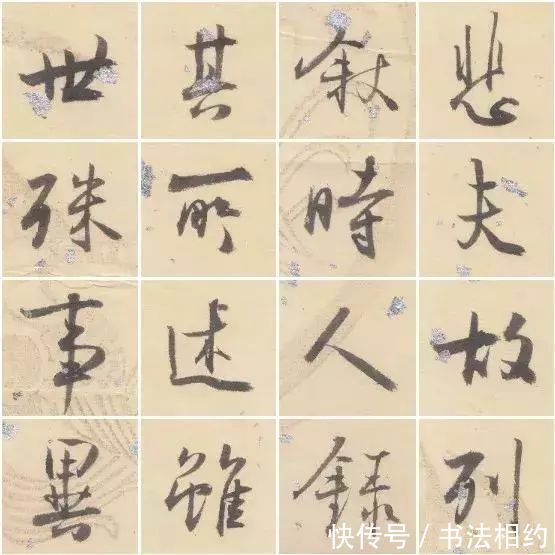 悲夫故列
敘時人錄
其所述雖
世殊事異
快传号/书法相约